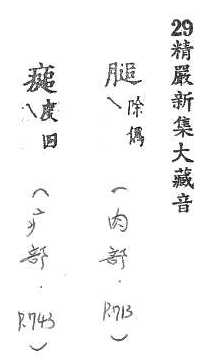 29精嚴新集大藏音
膇\除僞（肉部．P.713）
\度回（疒部．P.743）